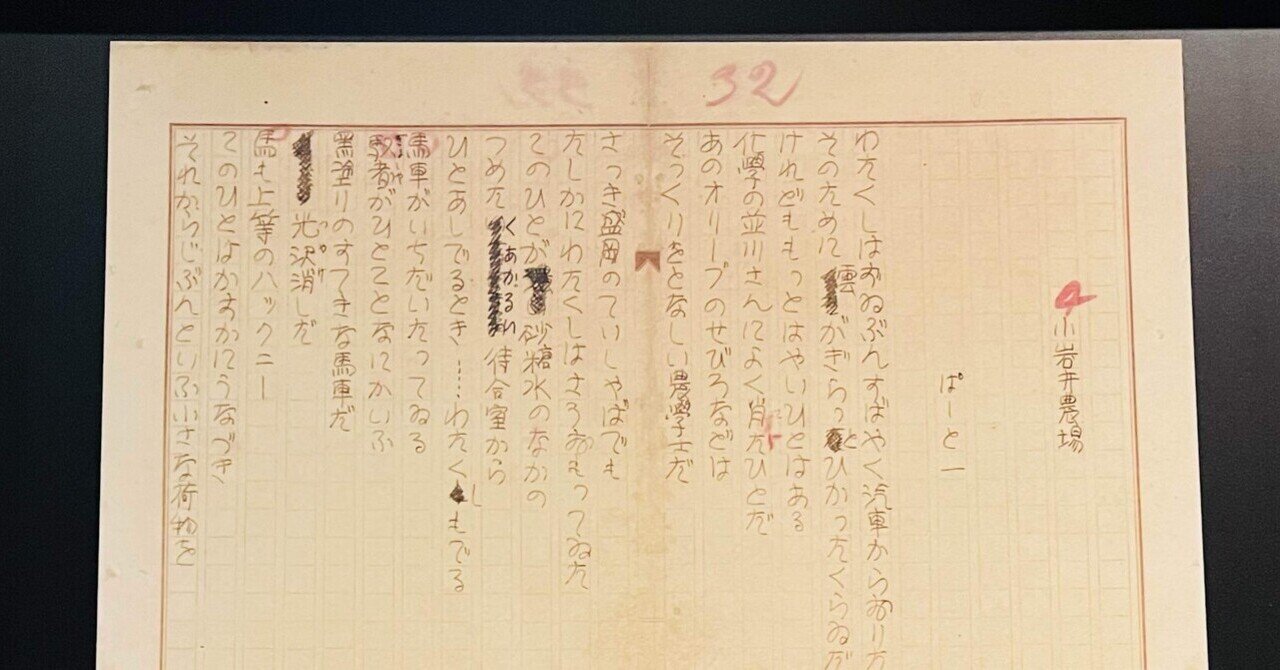 32
小岩井農場
ぱーと一
わたくしはずゐぶんすばやく汽車からおりた
そのために雲がぎらっとひかったくらゐだ
けれどももっとはやいひとはある
化學の並川さんによく肖たひとだ
あのオリーブのせびろなどは
そっくりをとなしい農學士だ
さっき盛岡のていしゃばでも
たしかにわたくしはさうおもってゐた
このひとが砂糖水のなかの
つめたくあかるい待合室から
ひとあしでるとき……わたくしもでる
馬車がいちだいたってゐる
馭者がひとことなにかいふ
黒塗りのすてきな馬車だ
光沢消しだ
馬も上等のハックニー
このひとはかすかにうなづき
それからじぶんといふ小さな荷物を